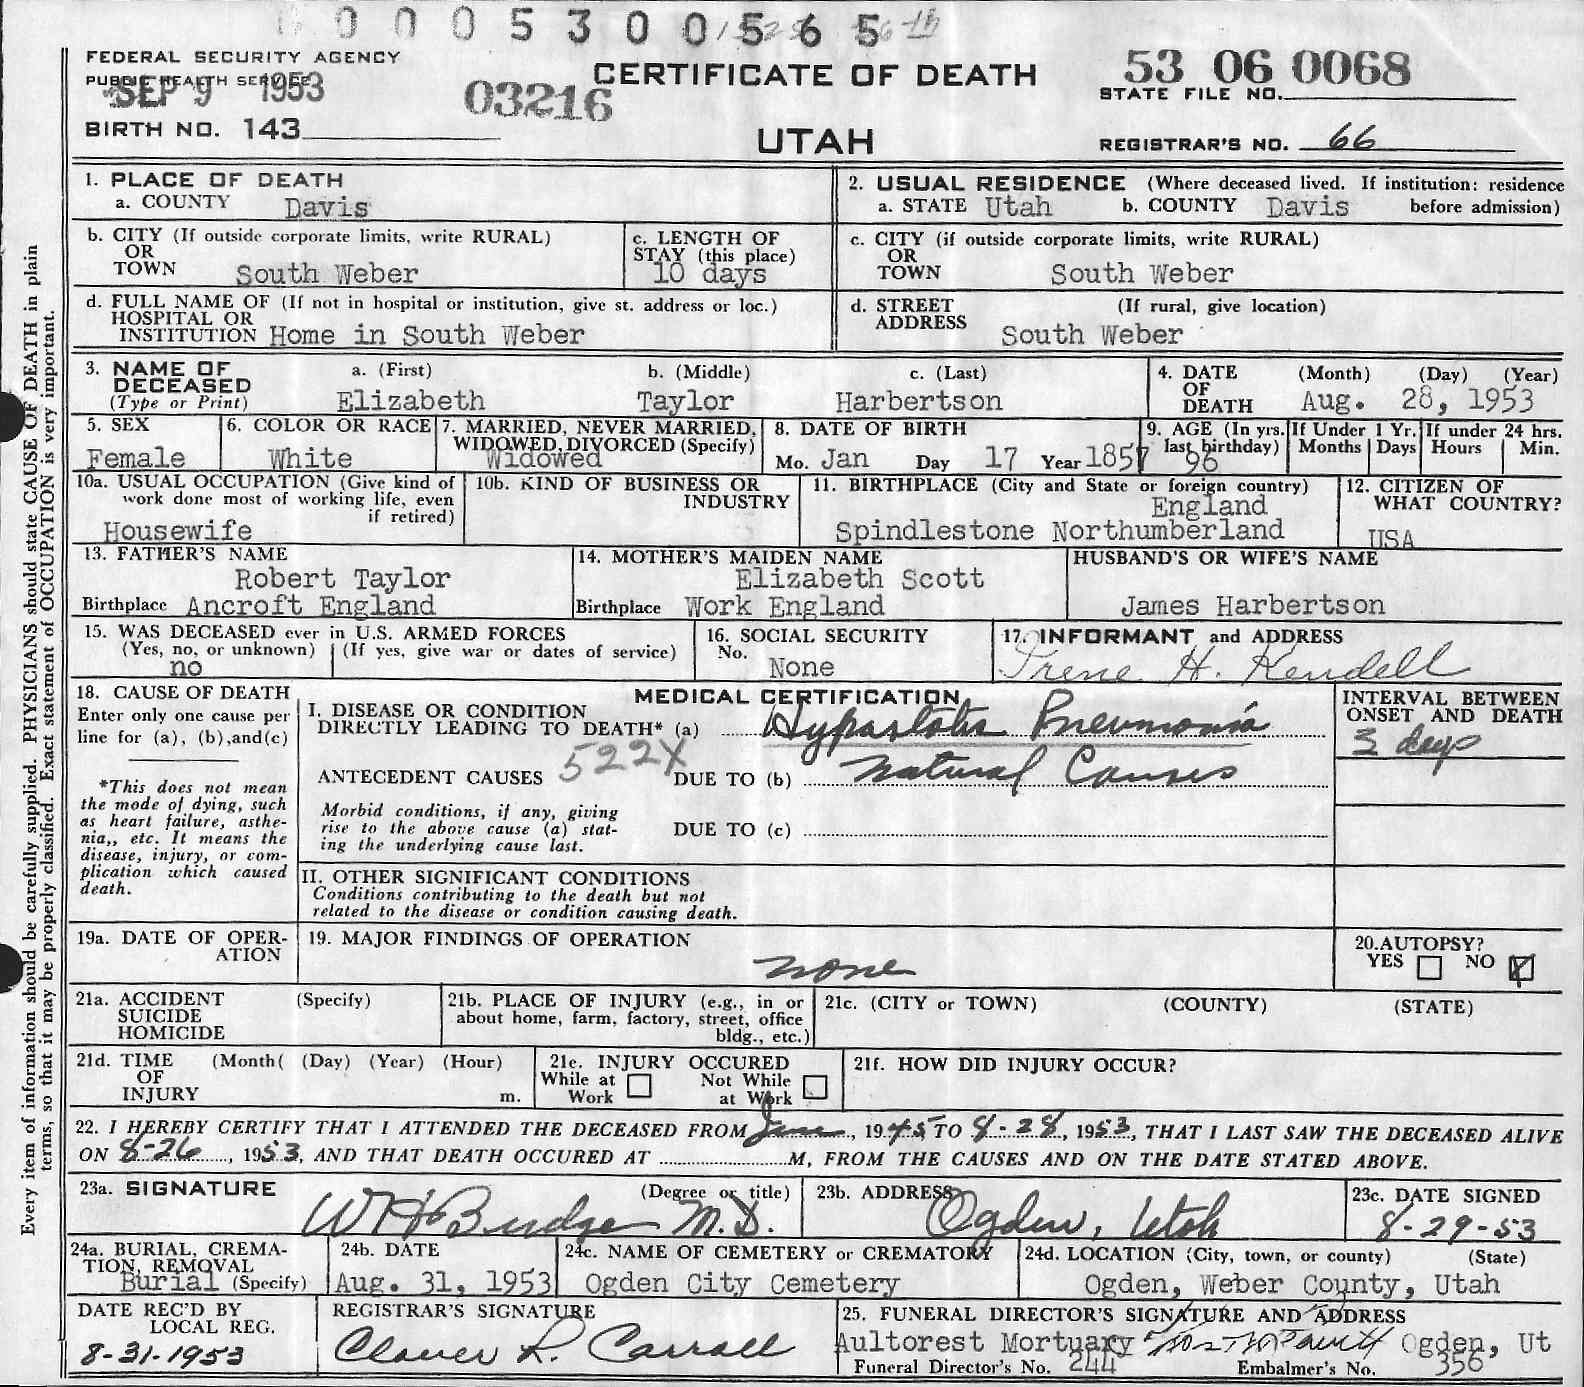 0 0 0 5 3 0 0 5 6 5
FEDERAL SECURITY AGENCY
PUBLIC HEALTH SERVICE
SEP 9 1953
03216
CERTIFICATE OF DEATH
53 06 0068
STATE FILE NO.
BIRTH NO. 143
UTAH
REGISTRAR'S NO. 66
1. PLACE OF DEATH
a. COUNTY Davis
2. USUAL RESIDENCE (Where deceased lived. If institution: residence
a. STATE Utah b. COUNTY Davis before admission)
b. CITY (If outside corporate limits, write RURAL)
OR
TOWN South Weber
c. LENGTH OF
STAY (this place)
10 days
c. CITY (if outside corporate limits, write RURAL)
OR
TOWN South Weber
d. FULL NAME OF (If not in hospital or institution, give st. address or loc.)
HOSPITAL OR
INSTITUTION Home in South Weber
d. STREET (If rural, give location)
ADDRESS South Weber
3. NAME OF DECEASED
(Type or Print)
a. (First) b. (Middle) c. (Last)
Elizabeth Taylor Harbertson
4. DATE OF DEATH (Month) (Day) (Year)
Aug. 28, 1953
5. SEX
Female
6. COLOR OR RACE
White
7. MARRIED, NEVER MARRIED,
WIDOWED, DIVORCED (Specify)
Widowed
8. DATE OF BIRTH
Mo. Jan Day 17 Year 1857
9. AGE (In yrs.
last birthday)
96
If Under 1 Yr.
Months Days
If under 24 hrs.
Hours Min.
10a. USUAL OCCUPATION (Give kind of
work done most of working life, even
if retired)
Housewife
10b. KIND OF BUSINESS OR
INDUSTRY
11. BIRTHPLACE (City and State or foreign country)
England
Spindlestone Northumberland
12. CITIZEN OF
WHAT COUNTRY?
USA
13. FATHER'S NAME
Robert Taylor
Birthplace Ancroft England
14. MOTHER'S MAIDEN NAME
Elizabeth Scott
Birthplace Work England
HUSBAND'S OR WIFE'S NAME
James Harbertson
15. WAS DECEASED ever in U.S. ARMED FORCES
(Yes, no, or unknown) (If yes, give war or dates of service)
no
16. SOCIAL SECURITY
No.
None
17. INFORMANT and ADDRESS
Irene H. Kendell
18. CAUSE OF DEATH
Enter only one cause per
line for (a), (b),and(c)
*This does not mean
the mode of dying, such
as heart failure, asthe-
nia,, etc. It means the
disease, injury, or com-
plication which caused
death.
MEDICAL CERTIFICATION
I. DISEASE OR CONDITION
DIRECTLY LEADING TO DEATH* (a) Hypostatic Pneumonia
522X
ANTECEDENT CAUSES DUE TO (b) natural Causes
Morbid conditions, if any, giving
rise to the above cause (a) stat-
ing the underlying cause last.
DUE TO (c)
II. OTHER SIGNIFICANT CONDITIONS
Conditions contributing to the death but not
related to the disease or condition causing death.
INTERVAL BETWEEN
ONSET AND DEATH
3 days
19a. DATE OF OPER-
ATION
19. MAJOR FINDINGS OF OPERATION
none
20.AUTOPSY?
YES NO
21a. ACCIDENT (Specify)
SUICIDE
HOMICIDE
21b. PLACE OF INJURY (e.g., in or
about home, farm, factory, street, office
bldg., etc.)
21c. (CITY or TOWN) (COUNTY) (STATE)
21d. TIME (Month( (Day) (Year) (Hour)
OF
INJURY m.
21e. INJURY OCCURED
While at Work Not While at Work
21f. HOW DID INJURY OCCUR?
22. I HEREBY CERTIFY THAT I ATTENDED THE DECEASED FROM June, 1945 TO 8-28, 1953, THAT I LAST SAW THE DECEASED ALIVE
ON 8-26, 1953, AND THAT DEATH OCCURED AT M, FROM THE CAUSES AND ON THE DATE STATED ABOVE.
23a. SIGNATURE (Degree or title)
W H Budge M.D.
23b. ADDRESS
Ogden, Utah
23c. DATE SIGNED
8-29-53
24a. BURIAL, CREMA-
TION, REMOVAL
Burial (Specify)
24b. DATE
Aug. 31, 1953
24c. NAME OF CEMETERY or CREMATORY
Ogden City Cemetery
24d. LOCATION (City, town, or county) (State)
Ogden, Weber County, Utah
DATE REC'D BY
LOCAL REG.
8-31-1953
REGISTRAR'S SIGNATURE
Carroll
25. FUNERAL DIRECTOR'S SIGNATURE AND ADDRESS
Aultorest Mortuary Ogden, Ut
Funeral Director's No. 244 Embalmer's No. 356
Every item of information should be carefully supplied. PHYSICIANS should state CAUSE OF DEATH in plain
terms, so that it may be properly classified. Exact statement of OCCUPATION is very important.